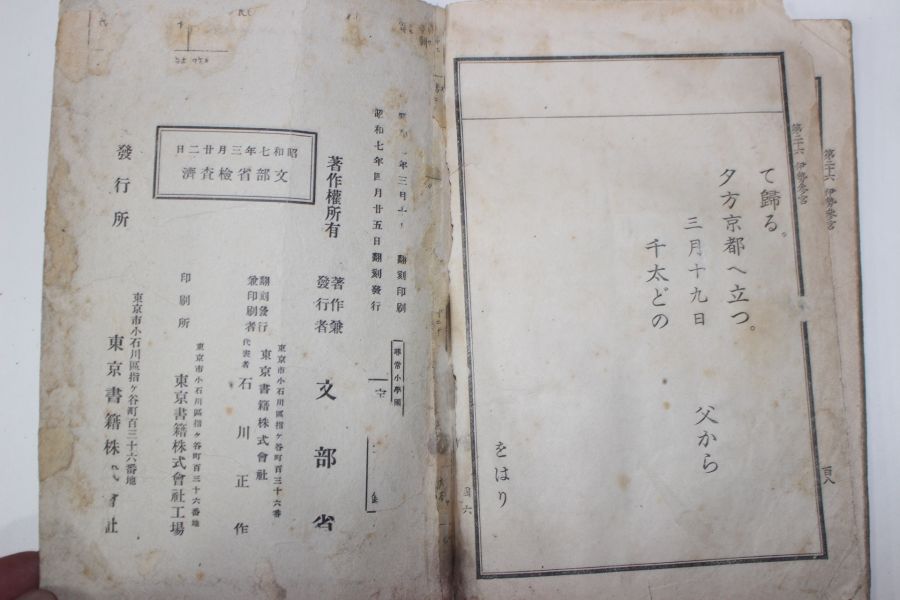 第二十六 伊勢參宮
百八
第二十六 伊勢參宮
て歸る。
夕方京都へ立つ。
三月十九日
父から
千太どの
をはり
年三月
翻刻印刷
昭和七年四月廿五日翻刻發行
尋常小學國
著作權所有
著作兼
發行者
文部省
昭和七年三月廿二日
文部省檢査濟
翻刻發行
兼印刷者
東京市小石川區指ヶ谷町百三十六番
東京書籍株式會社
代表者 石川正作
印刷所
東京市小石川區指ヶ谷町百三十六番地
東京書籍株式會社工場
發行所
東京市小石川區指ヶ谷町百三十六番地
東京書籍株式會社